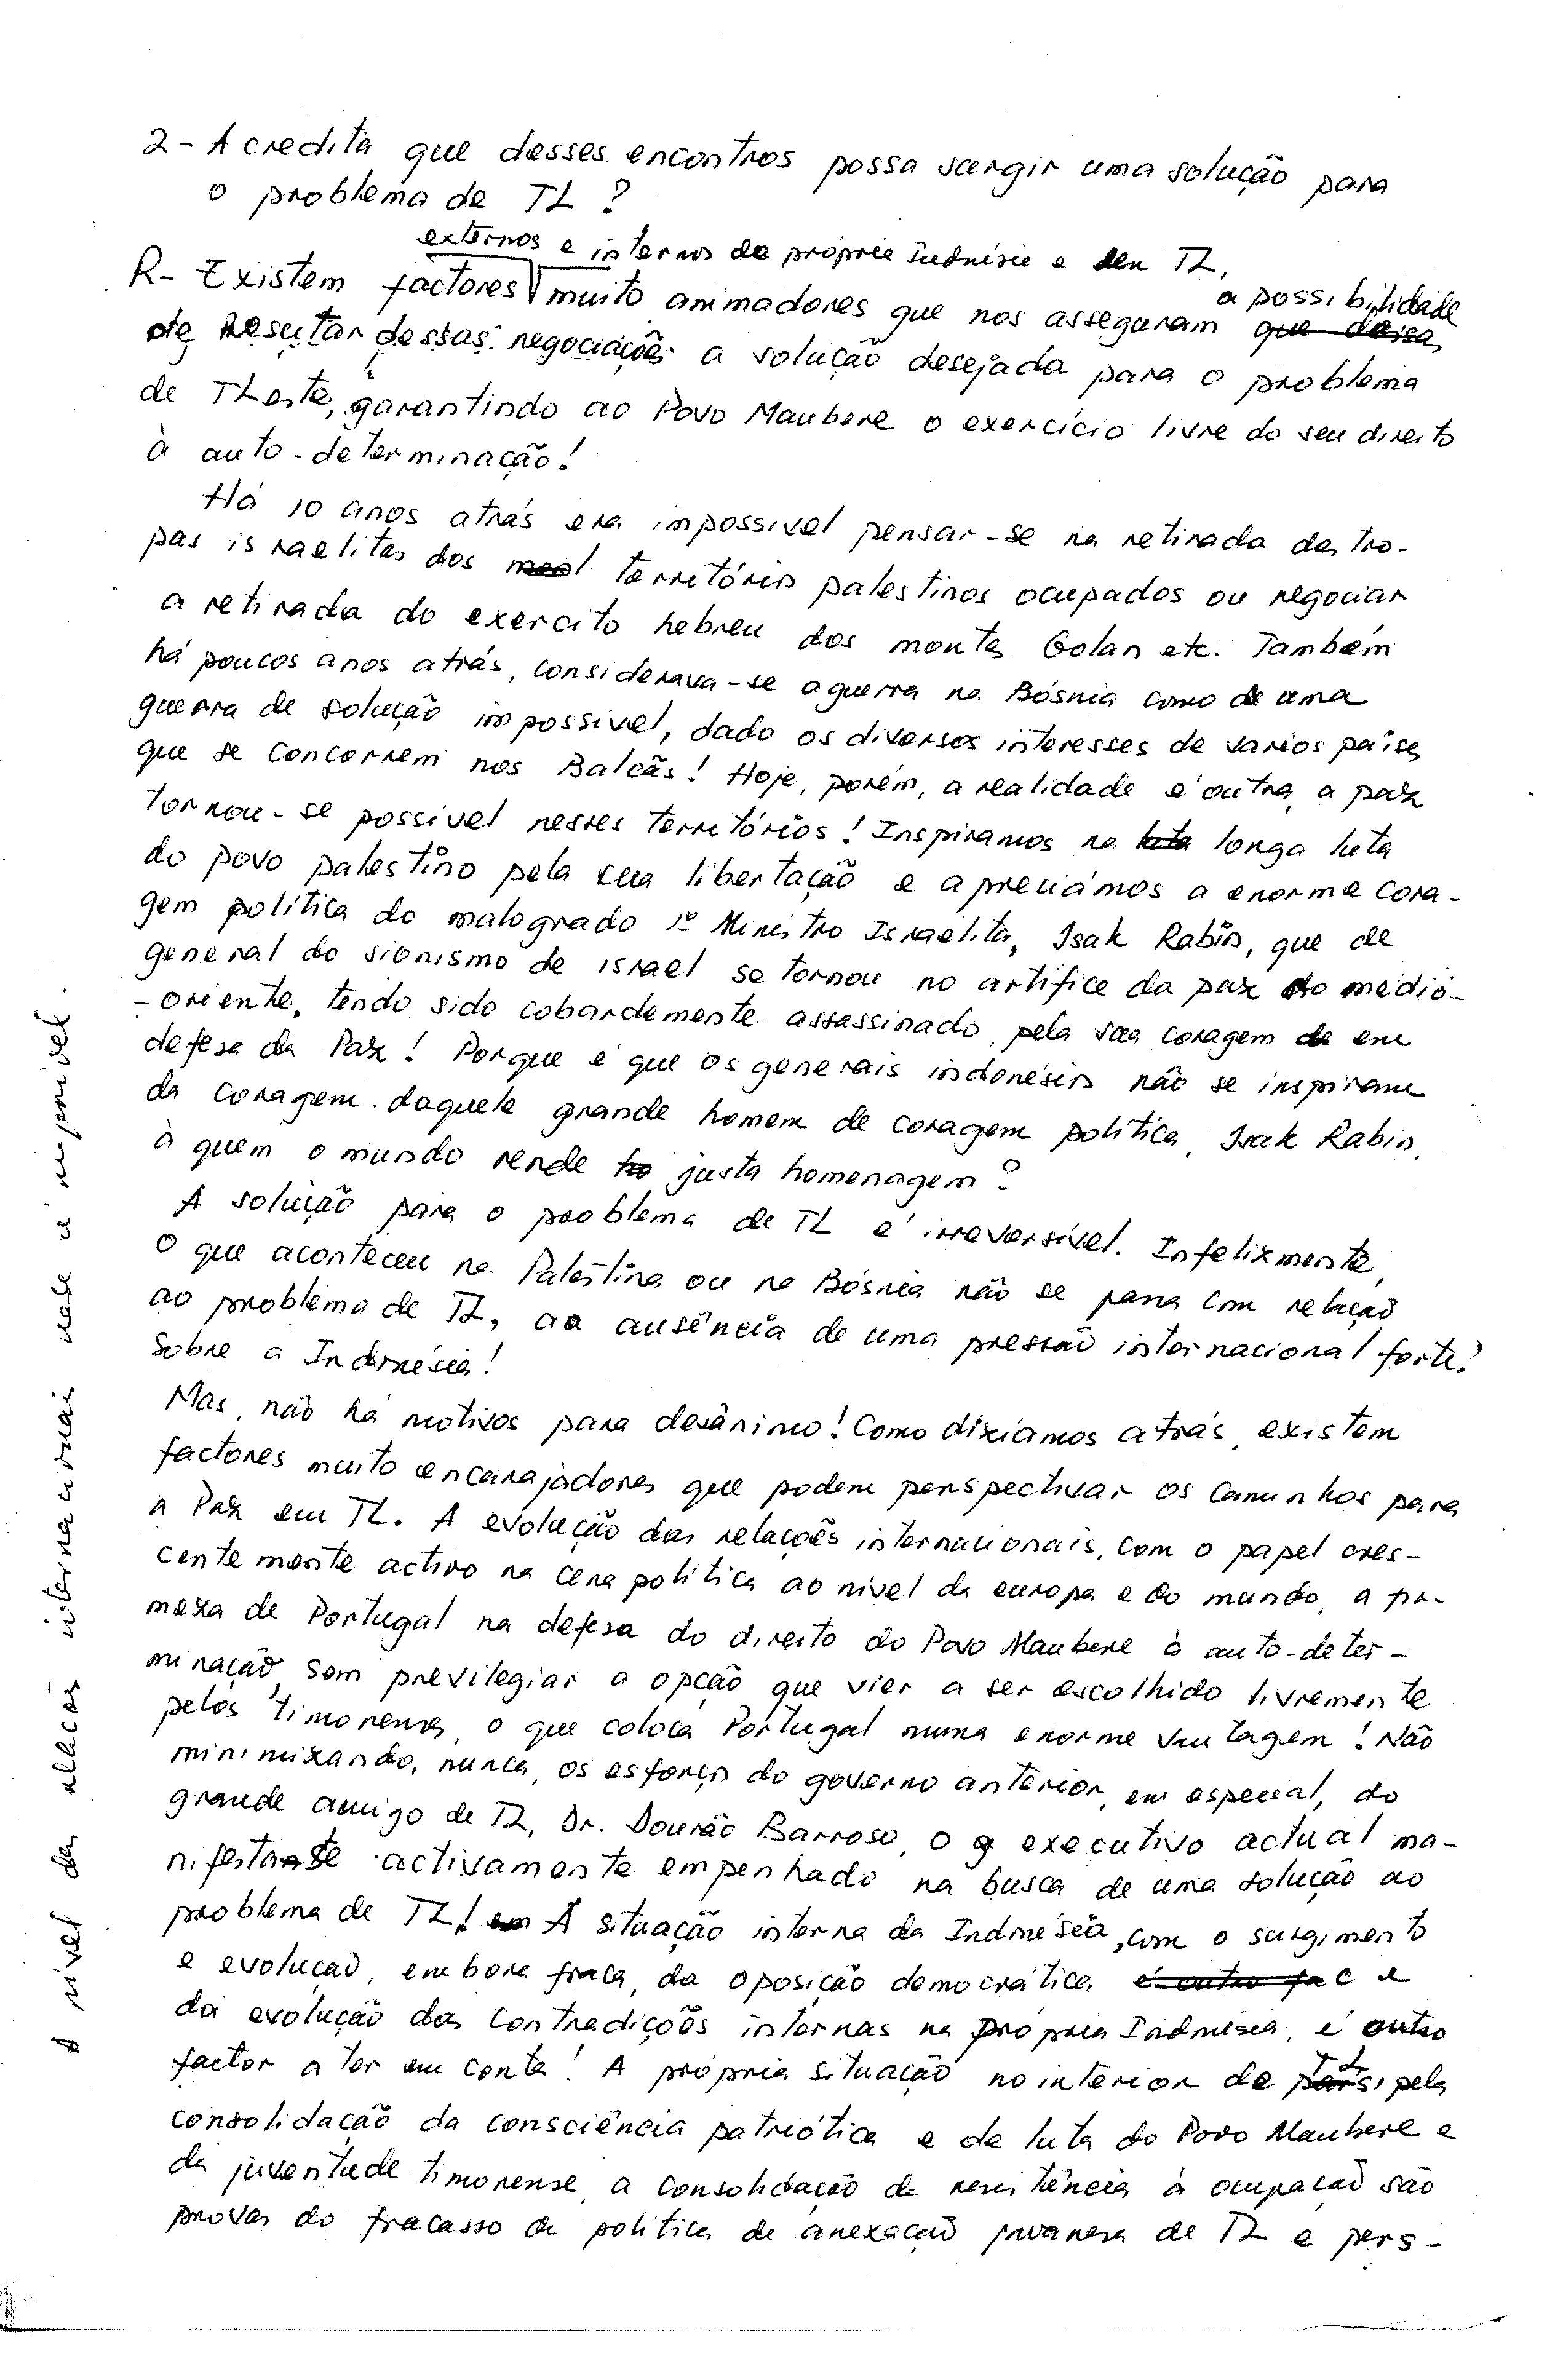 2- Acredita que desses encontros possa surgir uma solução para
o problema de TL?
externos e internos da própria Indonésia e em TL,
R- Existem factores muito animadores que nos asseguram a possibilidade
de resultar dessas negociações a solução desejada para o problema
de TLeste, garantindo ao Povo Maubere o exercício livre do seu direito
à auto-determinação!
Há 10 anos atrás era impossivel pensar-se na retirada das tro-
pas israelitas dos territórios palestinos ocupados ou negociar
a retirada do exercito hebreu dos montes Golan etc. Também
há poucos anos atrás, considerava-se a guerra na Bósnia como de uma
guerra de solução impossivel, dado os diversos interesses de varios países
que se concorrem nos Balcãs! Hoje, porém, a realidade é outra, a paz
tornou-se possivel nesses territórios! Inspiramos na longa luta
do povo palestino pela sua libertação e apreciámos a enorme cora-
gem política do malogrado 1º Ministro Israelita, Isak Rabin, que de
general do sionismo de israel se tornou no artífice da paz do médio-
-oriente, tendo sido cobardemente assassinado, pela sua coragem em
defesa da Paz! Porque é que os generais indonésios não se inspiram
da coragem daquele grande homem de coragem política, Isak Rabin,
à quem o mundo rende justa homenagem?
A solução para o problema de TL é irreversível. Infelizmente,
o que aconteceu na Palestina ou na Bósnia não se passa com relação
ao problema de TL, a ausência de uma pressão internacional forte
sobre a Indonésia!
Mas, não há motivos para desânimo! Como dizíamos atrás, existem
factores muito encorajadores que podem perspectivar os caminhos para
a Paz em TL. A evolução das relações internacionais, com o papel cres-
centemente activo na cena politica ao nivel da europa e do mundo, a pr-
meza de Portugal na defesa do direito do Povo Maubere à auto-deter-
minação, sem previlegiar a opção que vier a ser escolhido livremente
pelos timorenses, o que coloca Portugal numa enorme vantagem! Não
minimizando, nunca, os esforços do governo anterior, em especial, do
grande amigo de TL, Dr. Dourão Barroso, o executivo actual ma-
nifesta-se activamente empenhado na busca de uma solução ao
problema de TL! A situação interna da Indonésia, com o surgimento
e evolução, embora fraca, da oposição democrática e
da evolução das contradições internas na própria Indonésia, é outro
factor a ter em conta! A própria situação no interior de TL, pela
consolidação da consciência patriótica e de luta do Povo Maubere e
da juventude timorense, a consolidação da resistência à ocupação são
provas do fracasso da política de anexação javanesa de TL e pers-
A nível das relações internacionais nada é impossível.